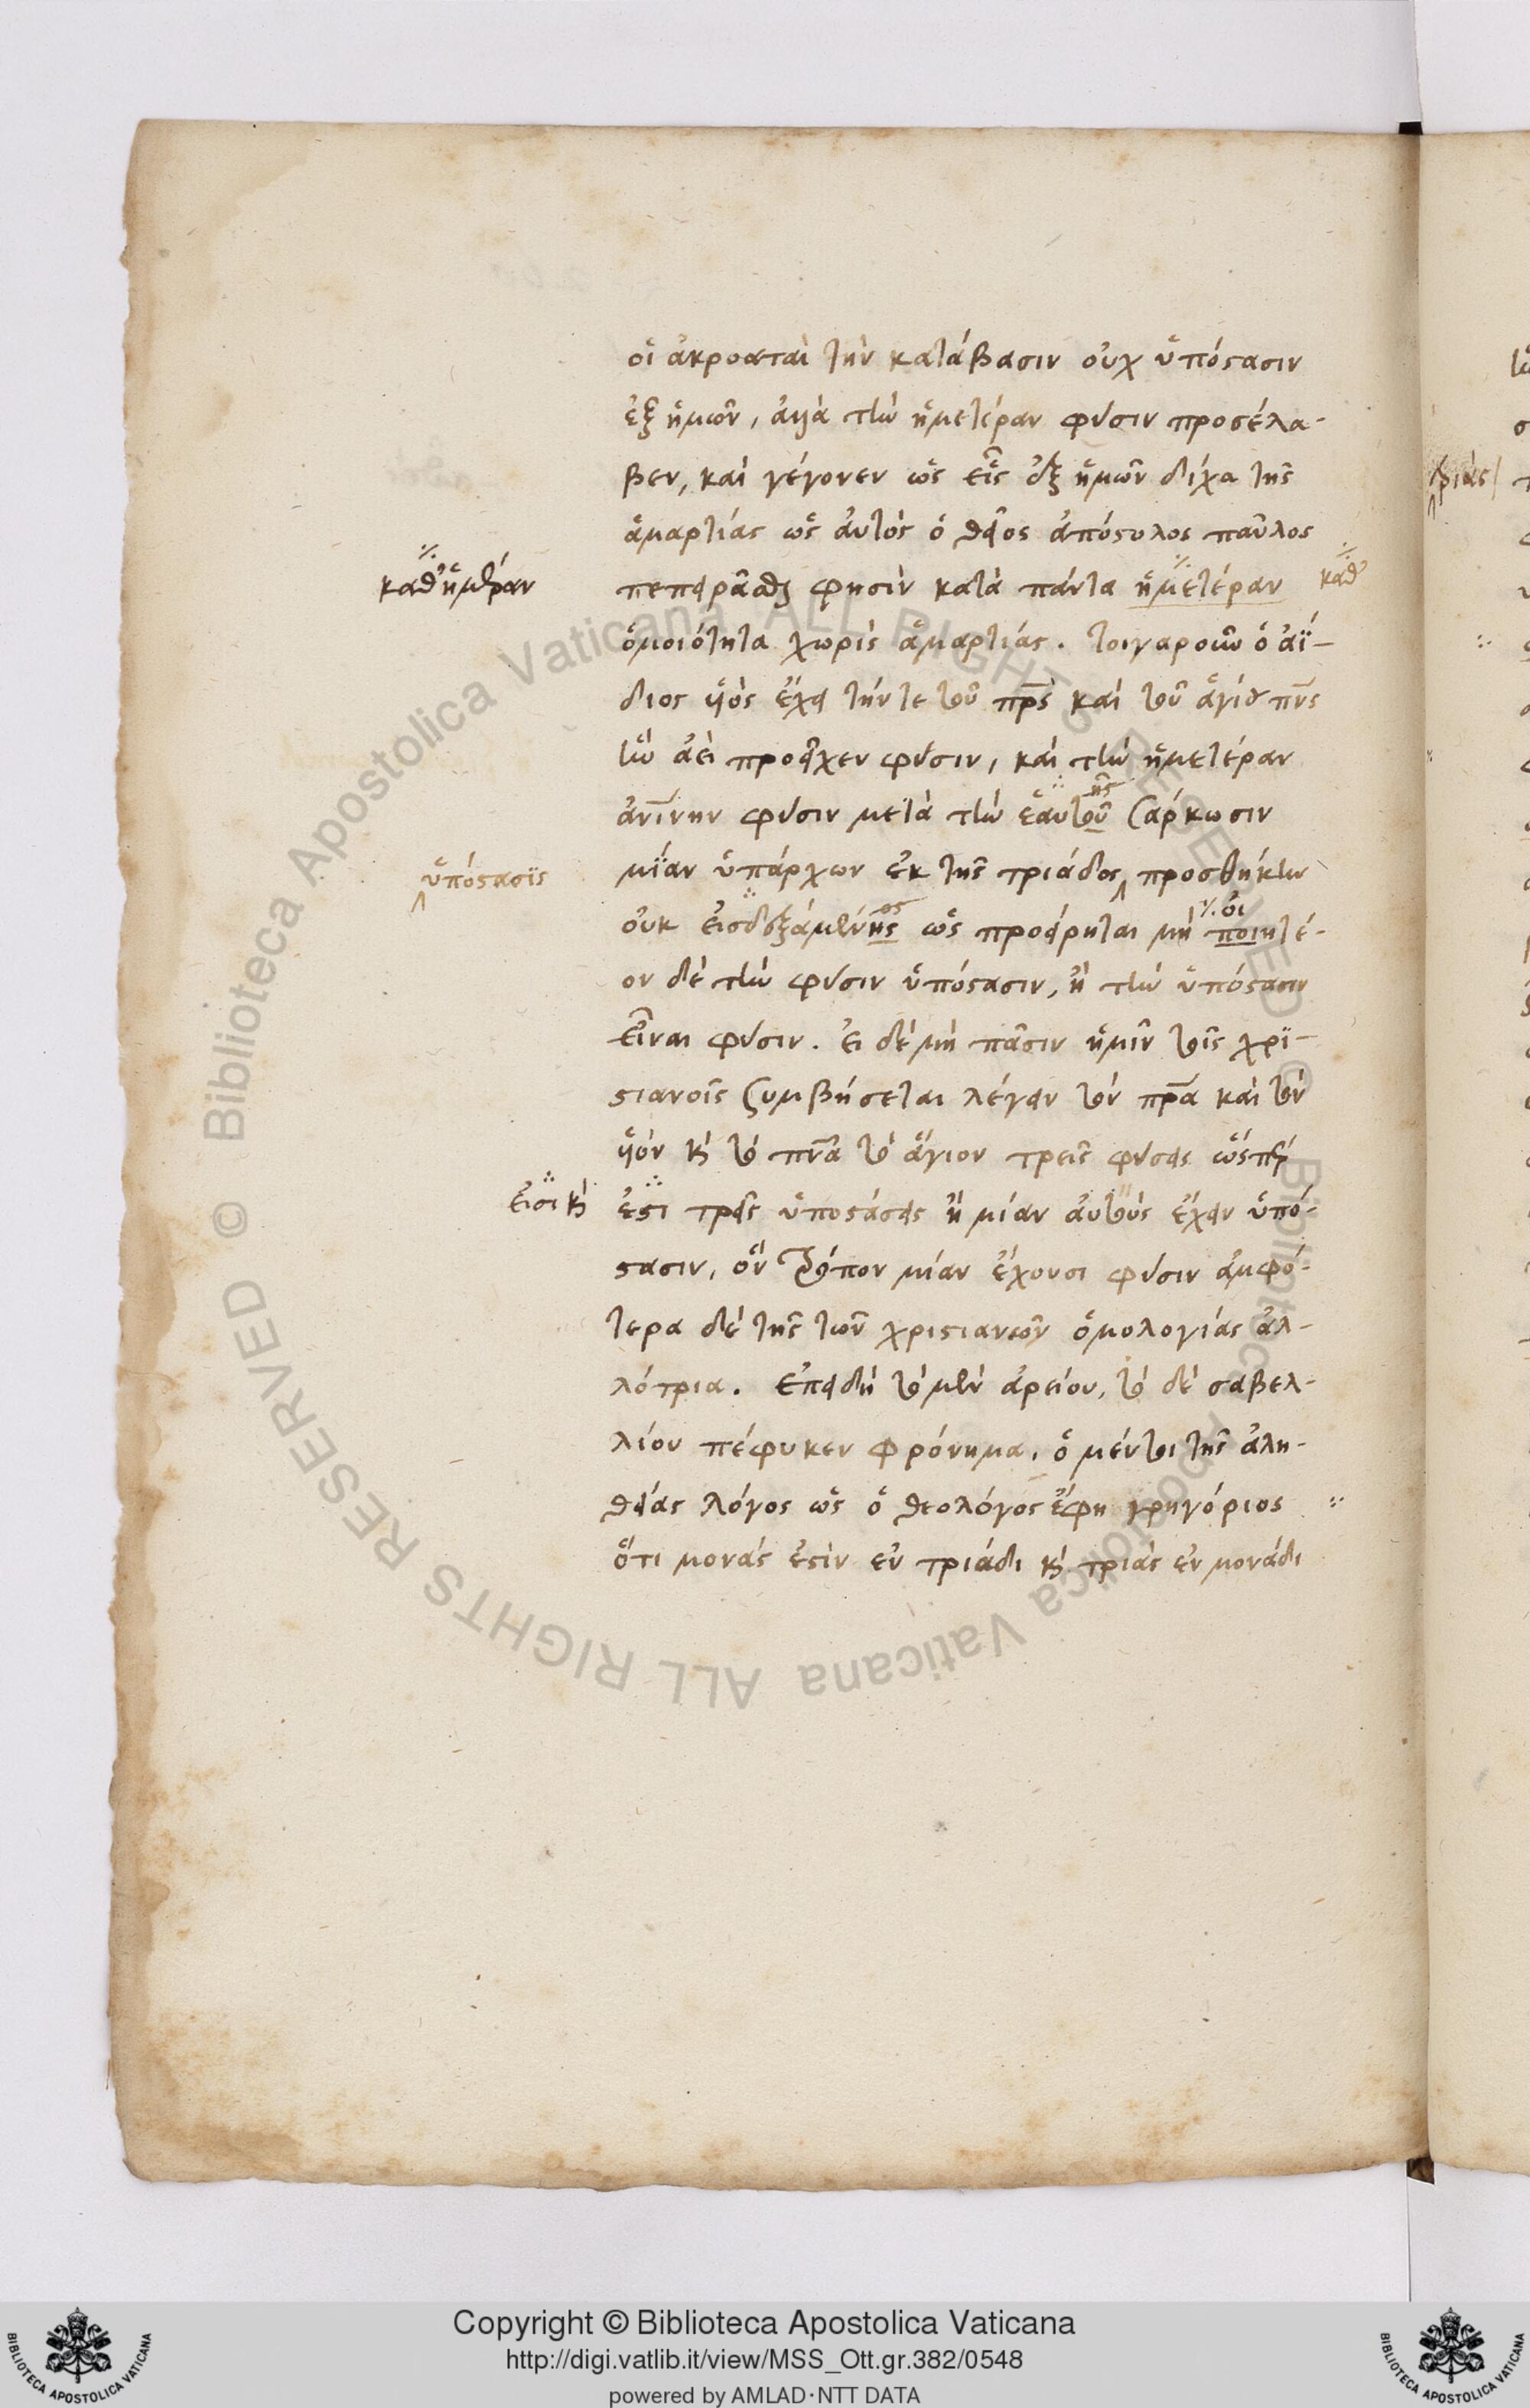 οἱ ἀκροαταὶ τὴν κατάβασιν οὐχ ὑπόστασιν
ἐξ ἡμῶν, ἀλλὰ τὴν ἡμετέραν φύσιν προσέλα-
βεν, καὶ γέγονεν ὡς εἷς ἐξ ἡμῶν δίχα τῆς
ἁμαρτίας ὡς αὐτὸς ὁ θεῖος ἀπόστολος παῦλος
καθ' ἡμετέραν
πεπειρᾶσθαι φησὶν κατὰ πάντα ἡμετέραν καθ'
ὁμοιότητα χωρὶς ἁμαρτίας. τοιγαροῦν ὁ ἀΐ-
διος υἱὸς ἔχει τήν τε τοῦ πρς καὶ τοῦ ἁγίου πνς
ἣν ἀεὶ προεῖχεν φύσιν, καὶ τὴν ἡμετέραν
ἀνίνην φύσιν μετὰ τὴν ἑαυτοῦ ῆς σάρκωσιν
ὑπόστασϊς
μίαν ὑπάρχων ἐκ τῆς τριάδος προσθήκην
οὐκ εἰσδεξάμενης ος ὡς προείρηται μὴ ποιητέ- οἰ
ον δὲ τὴν φύσιν ὑπόστασιν, ἢ τὴν ὑπόστασιν
εἶναι φύσιν. εἰ δὲ μὴ πᾶσιν ἡμῖν τοῖς χρι-
στιανοῖς συμβήσεται λέγειν τὸν πρα καὶ τὸν
υἱὸν κὶ τὸ πνα τὸ ἅγιον τρεῖς φύσεις ὥσπερ
εἰσι κὶ
ἐστι τρεῖς ὑποστάσεις ἢ μίαν αὐτοὺς ἔχειν ὑπό-
στασιν, ὃν τρόπον μίαν ἔχουσι φύσιν ἀμφό-
τερα δὲ τῆς τῶν χριστιανῶν ὁμολογίας ἀλ-
λότρια. Ἐπειδὴ τὸ μὲν ἀρείου, τὸ δὲ σαβελ-
λίου πέφυκεν φρόνημα, ὁ μέντοι τῆς ἀλη-
θείας λόγος ὡς ὁ θεολόγος ἔφη γρηγόριος
ὅτι μονάς ἐστὶν ἐν τριάδι κὶ τριὰς ἐν μονάδι
Copyright © Biblioteca Apostolica Vaticana
http://digi.vatlib.it/view/MSS_Ott.gr.382/0548
powered by AMLAD·NTT DATA
BIBLIOTECA APOSTOLICA VATICANA
BIBLIOTECA APOSTOLICA VATICANA
© Biblioteca Apostolica Vaticana ALL RIGHTS RESERVED © Biblioteca Apostolica Vaticana ALL RIGHTS RESERVED